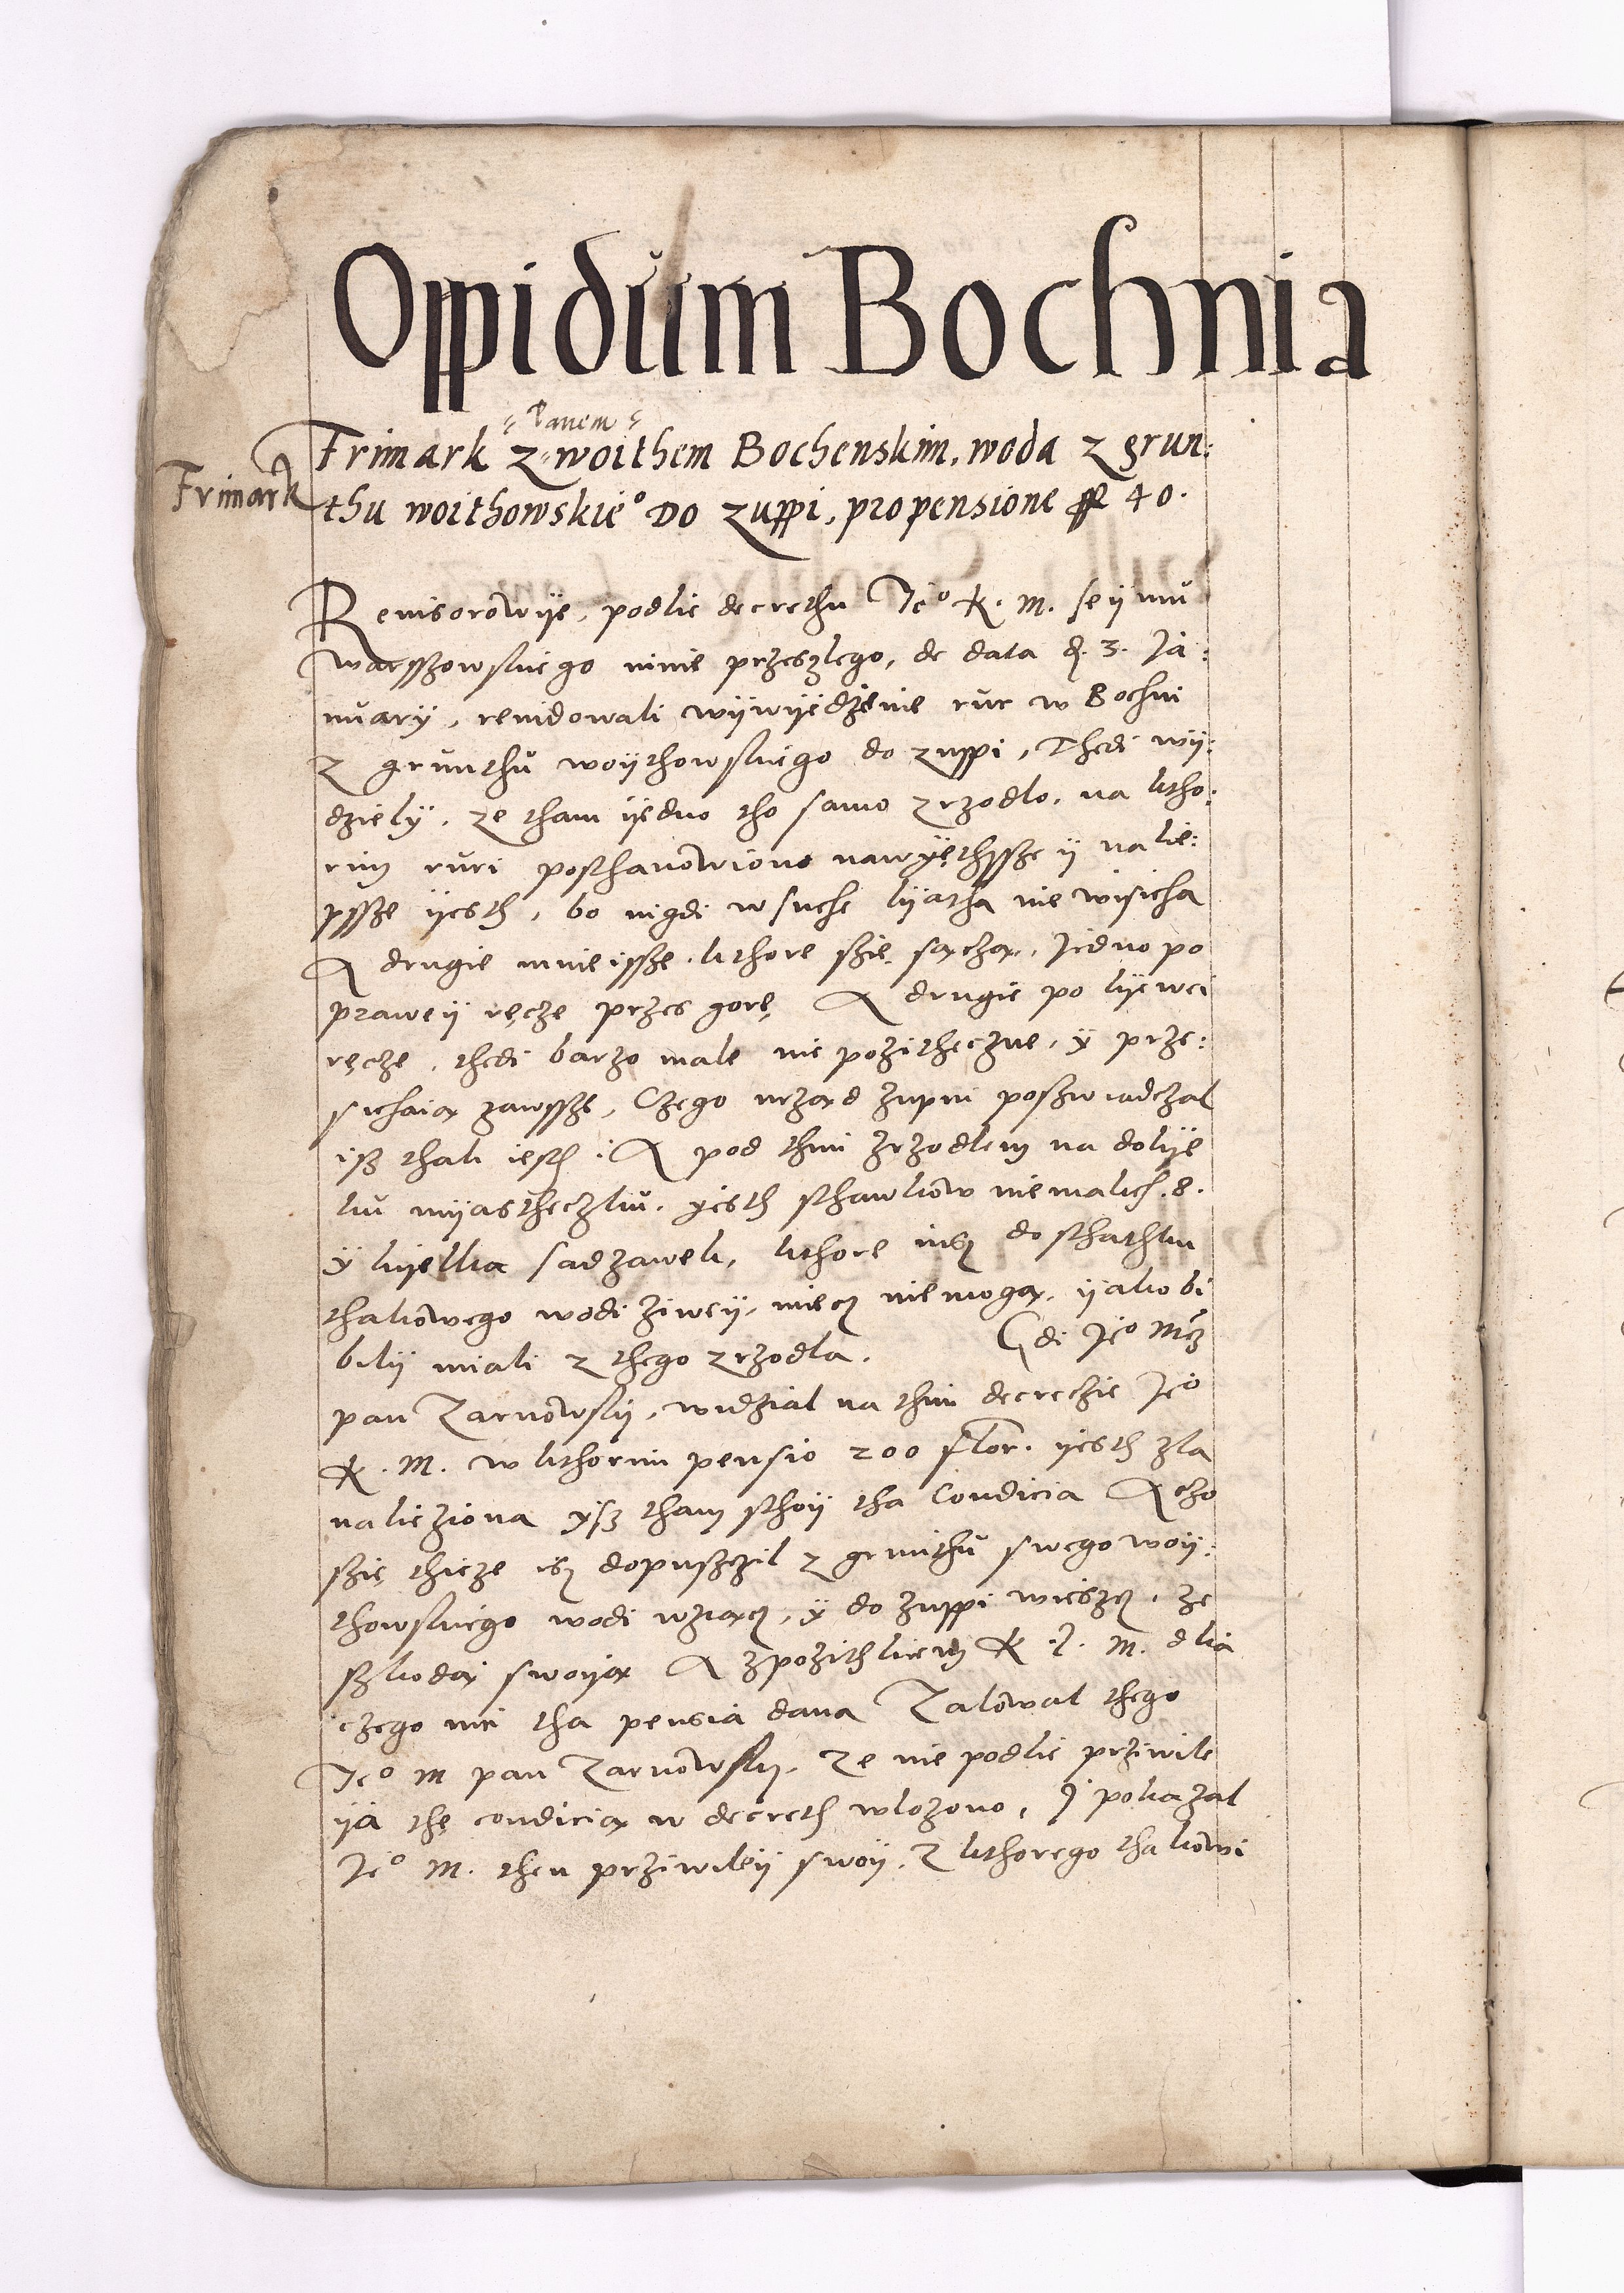 Oppidum Bochnia
Panem
Frimark z woithem Bochenskim, woda z grun:
Frimark
thu woithowskie° do zuppi, pro pensione ff 40.
Revisorowije, podlie decrethu Je° K. M. seijmu
warsszowskiego ninie przeszlego, de data d. 3. Ja:
nuarij, revidowali wijwijedzienie rur w Bochni
z grunthu woijthowskiego do zuppi, Thedi wij:
dziely, ze tham ijedno tho samo zrzodlo, na ktho:
rim ruri posthanowiono nawyethssze ij nalie:
pssze ijesth, bo nigdi w suche lijatha nie wisicha
A drugie mnieissze, kthore szie sączą, Jedno po
prawey ręcze przes gorę, A drugie po lijewei
ręcze, thedi barzo male nie pozitheczne, y prze:
sichaią zawssze, Czego urząd zupni poszwiadczal
isz thak iest: A pod thim zrzodlem na dolije
ku mijastheczku, yesth sthawkow niemalich .8.
y kijelka sadzawek, kthore iusz dosthathku
thakowego wodi ziweij, miecz niemogą, ijako bi
bilij miali z thego zrzodla. Gdi Je° Mcz
pan Zarnowskij, widzial na thim decreczie Je°
K. M. w kthorim pensio 200 flor. ijesth zla
nalieziona ysz tham sthoij tha Condicia A tho
szię thieze isz dopusczil z grunthu swego woij:
thowskiego wodi wziącz, y do zuppi wieszcz, ze
szkodą swoiją A z pozithkiem K J. M. dlia
czego mu tha pensia dana Zalowal thego
Je° M pan Zarnowskij, Ze nie podlie priwile
ija thę condicią w decreth wlozono, J pokazal
Je° M. then prziwileij swoij, z kthorego thakowi